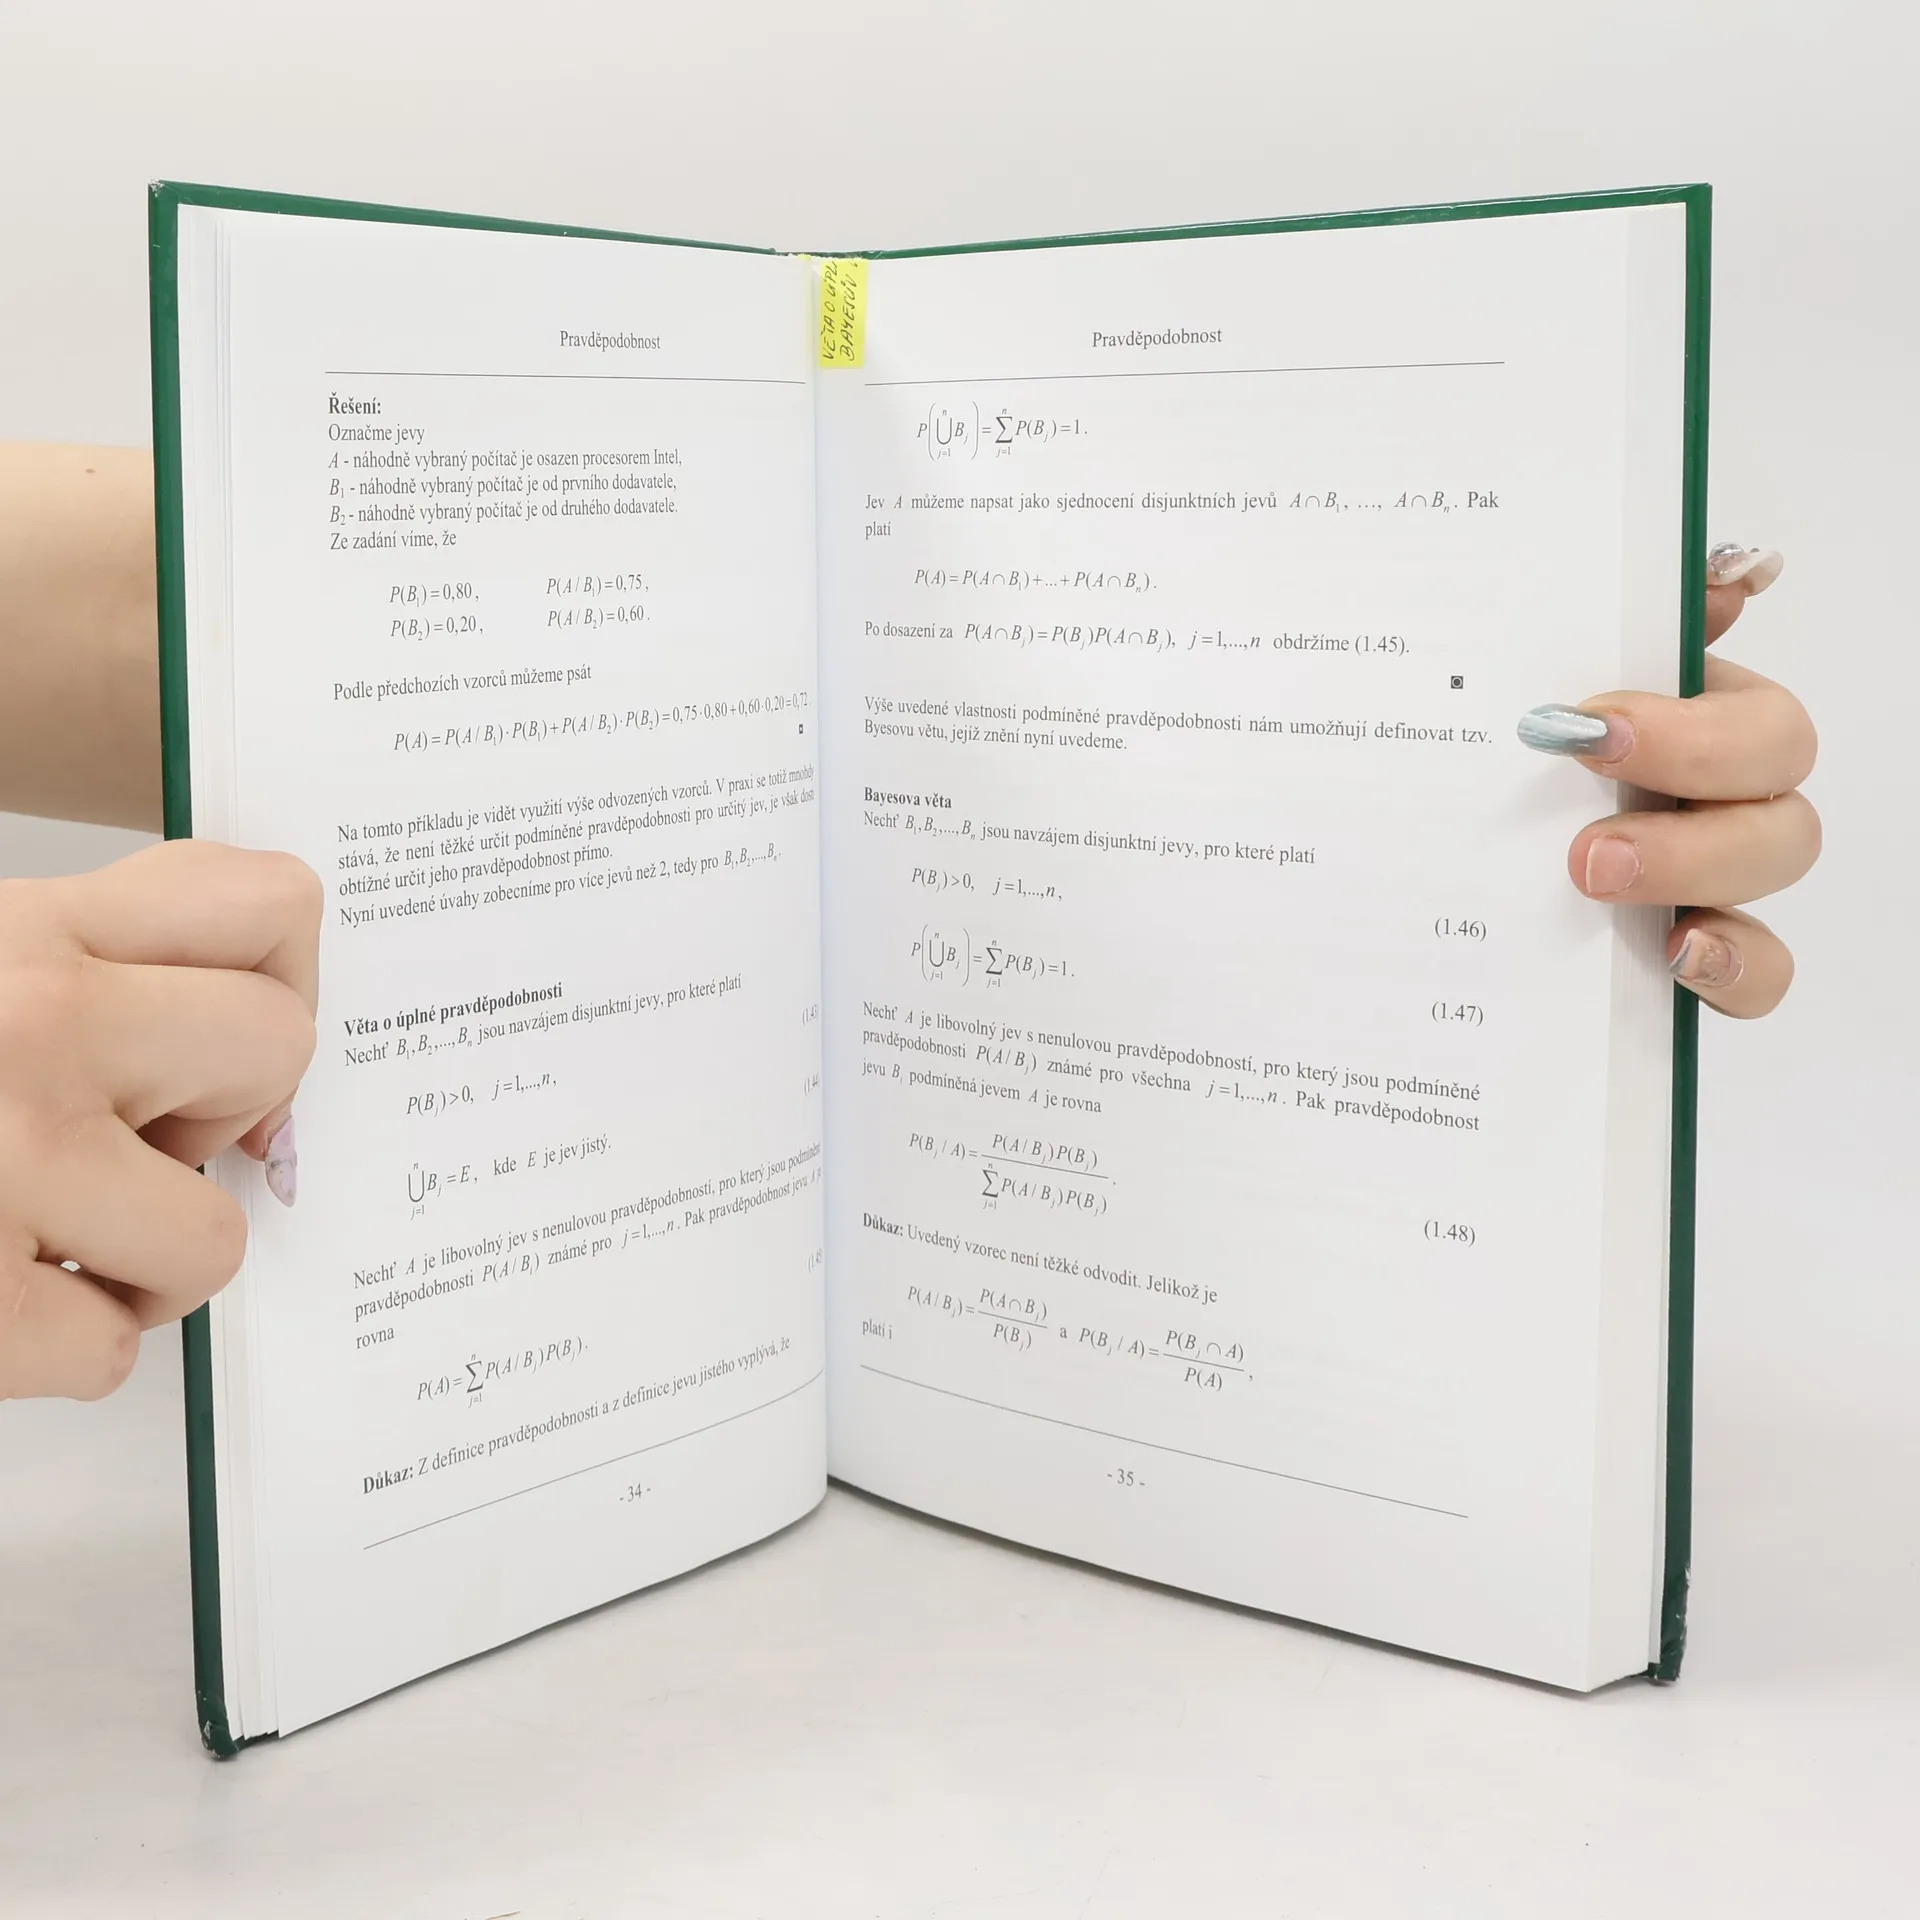 VĚTA O ÚPL
BAYESŮV
Pravděpodobnost
Řešení:
Označme jevy
A - náhodně vybraný počítač je osazen procesorem Intel,
B₁ - náhodně vybraný počítač je od prvního dodavatele,
B₂ - náhodně vybraný počítač je od druhého dodavatele.
Ze zadání víme, že
P(B₁)=0,80, P(A/B₁)=0,75,
P(B₂)=0,20, P(A/B₂)=0,60.
Podle předchozích vzorců můžeme psát
P(A)=P(A/B₁)·P(B₁)+P(A/B₂)·P(B₂)=0,75·0,80+0,60·0,20=0,72.
Na tomto příkladu je vidět využití výše odvozených vzorců. V praxi se totiž mnohdy
stává, že není těžké určit podmíněné pravděpodobnosti pro určitý jev, je však dosti
obtížné určit jeho pravděpodobnost přímo.
Nyní uvedené úvahy zobecníme pro více jevů než 2, tedy pro B₁,B₂,...,Bₙ.
Věta o úplné pravděpodobnosti
Nechť B₁,B₂,...,Bₙ jsou navzájem disjunktní jevy, pro které platí
(1.43)
P(Bⱼ)>0, j=1,...,n,
(1.44
⋃ⱼ₌₁ⁿ Bⱼ=E, kde E je jev jistý.
Nechť A je libovolný jev s nenulovou pravděpodobností, pro který jsou podmíněné
pravděpodobnosti P(A/Bⱼ) známé pro j=1,...,n. Pak pravděpodobnost jevu A je
rovna
(1.45
P(A)=∑ⱼ₌₁ⁿ P(A/Bⱼ)P(Bⱼ).
Důkaz: Z definice pravděpodobnosti a z definice jevu jistého vyplývá, že
- 34 -
Pravděpodobnost
P(⋃ⱼ₌₁ⁿ Bⱼ)=∑ⱼ₌₁ⁿ P(Bⱼ)=1.
Jev A můžeme napsat jako sjednocení disjunktních jevů A∩B₁, ..., A∩Bₙ. Pak
platí
P(A)=P(A∩B₁)+...+P(A∩Bₙ).
Po dosazení za P(A∩Bⱼ)=P(Bⱼ)P(A∩Bⱼ), j=1,...,n obdržíme (1.45).
Výše uvedené vlastnosti podmíněné pravděpodobnosti nám umožňují definovat tzv.
Byesovu větu, jejíž znění nyní uvedeme.
Bayesova věta
Nechť B₁,B₂,...,Bₙ jsou navzájem disjunktní jevy, pro které platí
P(Bⱼ)>0, j=1,...,n,
(1.46)
P(⋃ⱼ₌₁ⁿ Bⱼ)=∑ⱼ₌₁ⁿ P(Bⱼ)=1.
(1.47)
Nechť A je libovolný jev s nenulovou pravděpodobností, pro který jsou podmíněné
pravděpodobnosti P(A/Bⱼ) známé pro všechna j=1,...,n. Pak pravděpodobnost
jevu Bⱼ podmíněná jevem A je rovna
P(Bⱼ/A)=P(A/Bⱼ)P(Bⱼ)/∑ⱼ₌₁ⁿ P(A/Bⱼ)P(Bⱼ).
(1.48)
Důkaz: Uvedený vzorec není těžké odvodit. Jelikož je
P(A/Bⱼ)=P(A∩Bⱼ)/P(Bⱼ) a P(Bⱼ/A)=P(Bⱼ∩A)/P(A),
platí i
- 35 -